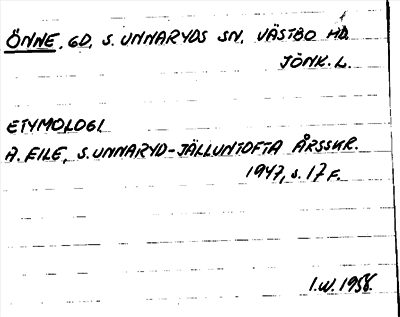 ÖNNE, GD, S. UNNARYDS SN. VÄSTBO HD.
JÖNK. L.
ETYMOLOGI
A. EILE, S. UNNARYD-JÄLLUNTOFTA ÅRSSKR.
1947, s. 17 F.
I.W. 1958.